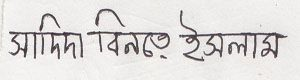 সাদিদা বিনতে ইসলাম